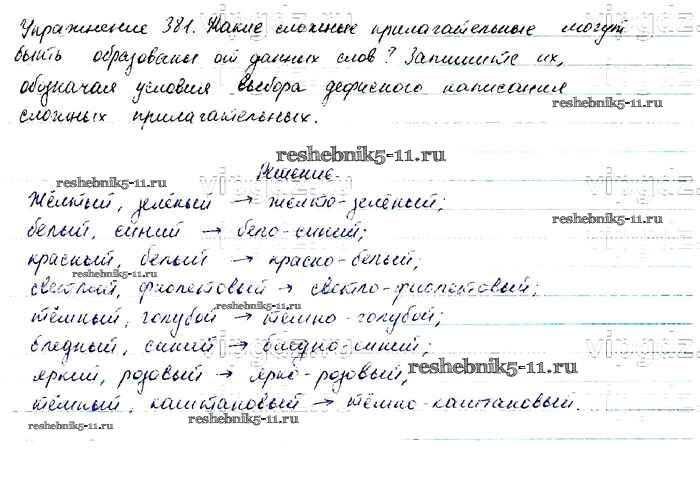 Упражнение 381. Какие сложные прилагательные могут
быть образованы от данных слов? Запишите их,
обозначая условия выбора дефисного написания
сложных прилагательных.
reshebnik5-11.ru
reshebnik5-11.ru
Решение.
reshebnik5-11.ru
Жёлтый, зелёный → жёлто-зелёный;
reshebnik5-11.ru
белый, синий → бело-синий;
красный, белый → красно-белый;
reshebnik5-11.ru
светлый, фиолетовый → светло-фиолетовый;
reshebnik5-11.ru
тёмный, голубой → тёмно-голубой;
бледный, синий → бледно-синий;
reshebnik5-11.ru
яркий, розовый → ярко-розовый;
тёмный, каштановый → тёмно-каштановый.
reshebnik5-11.ru